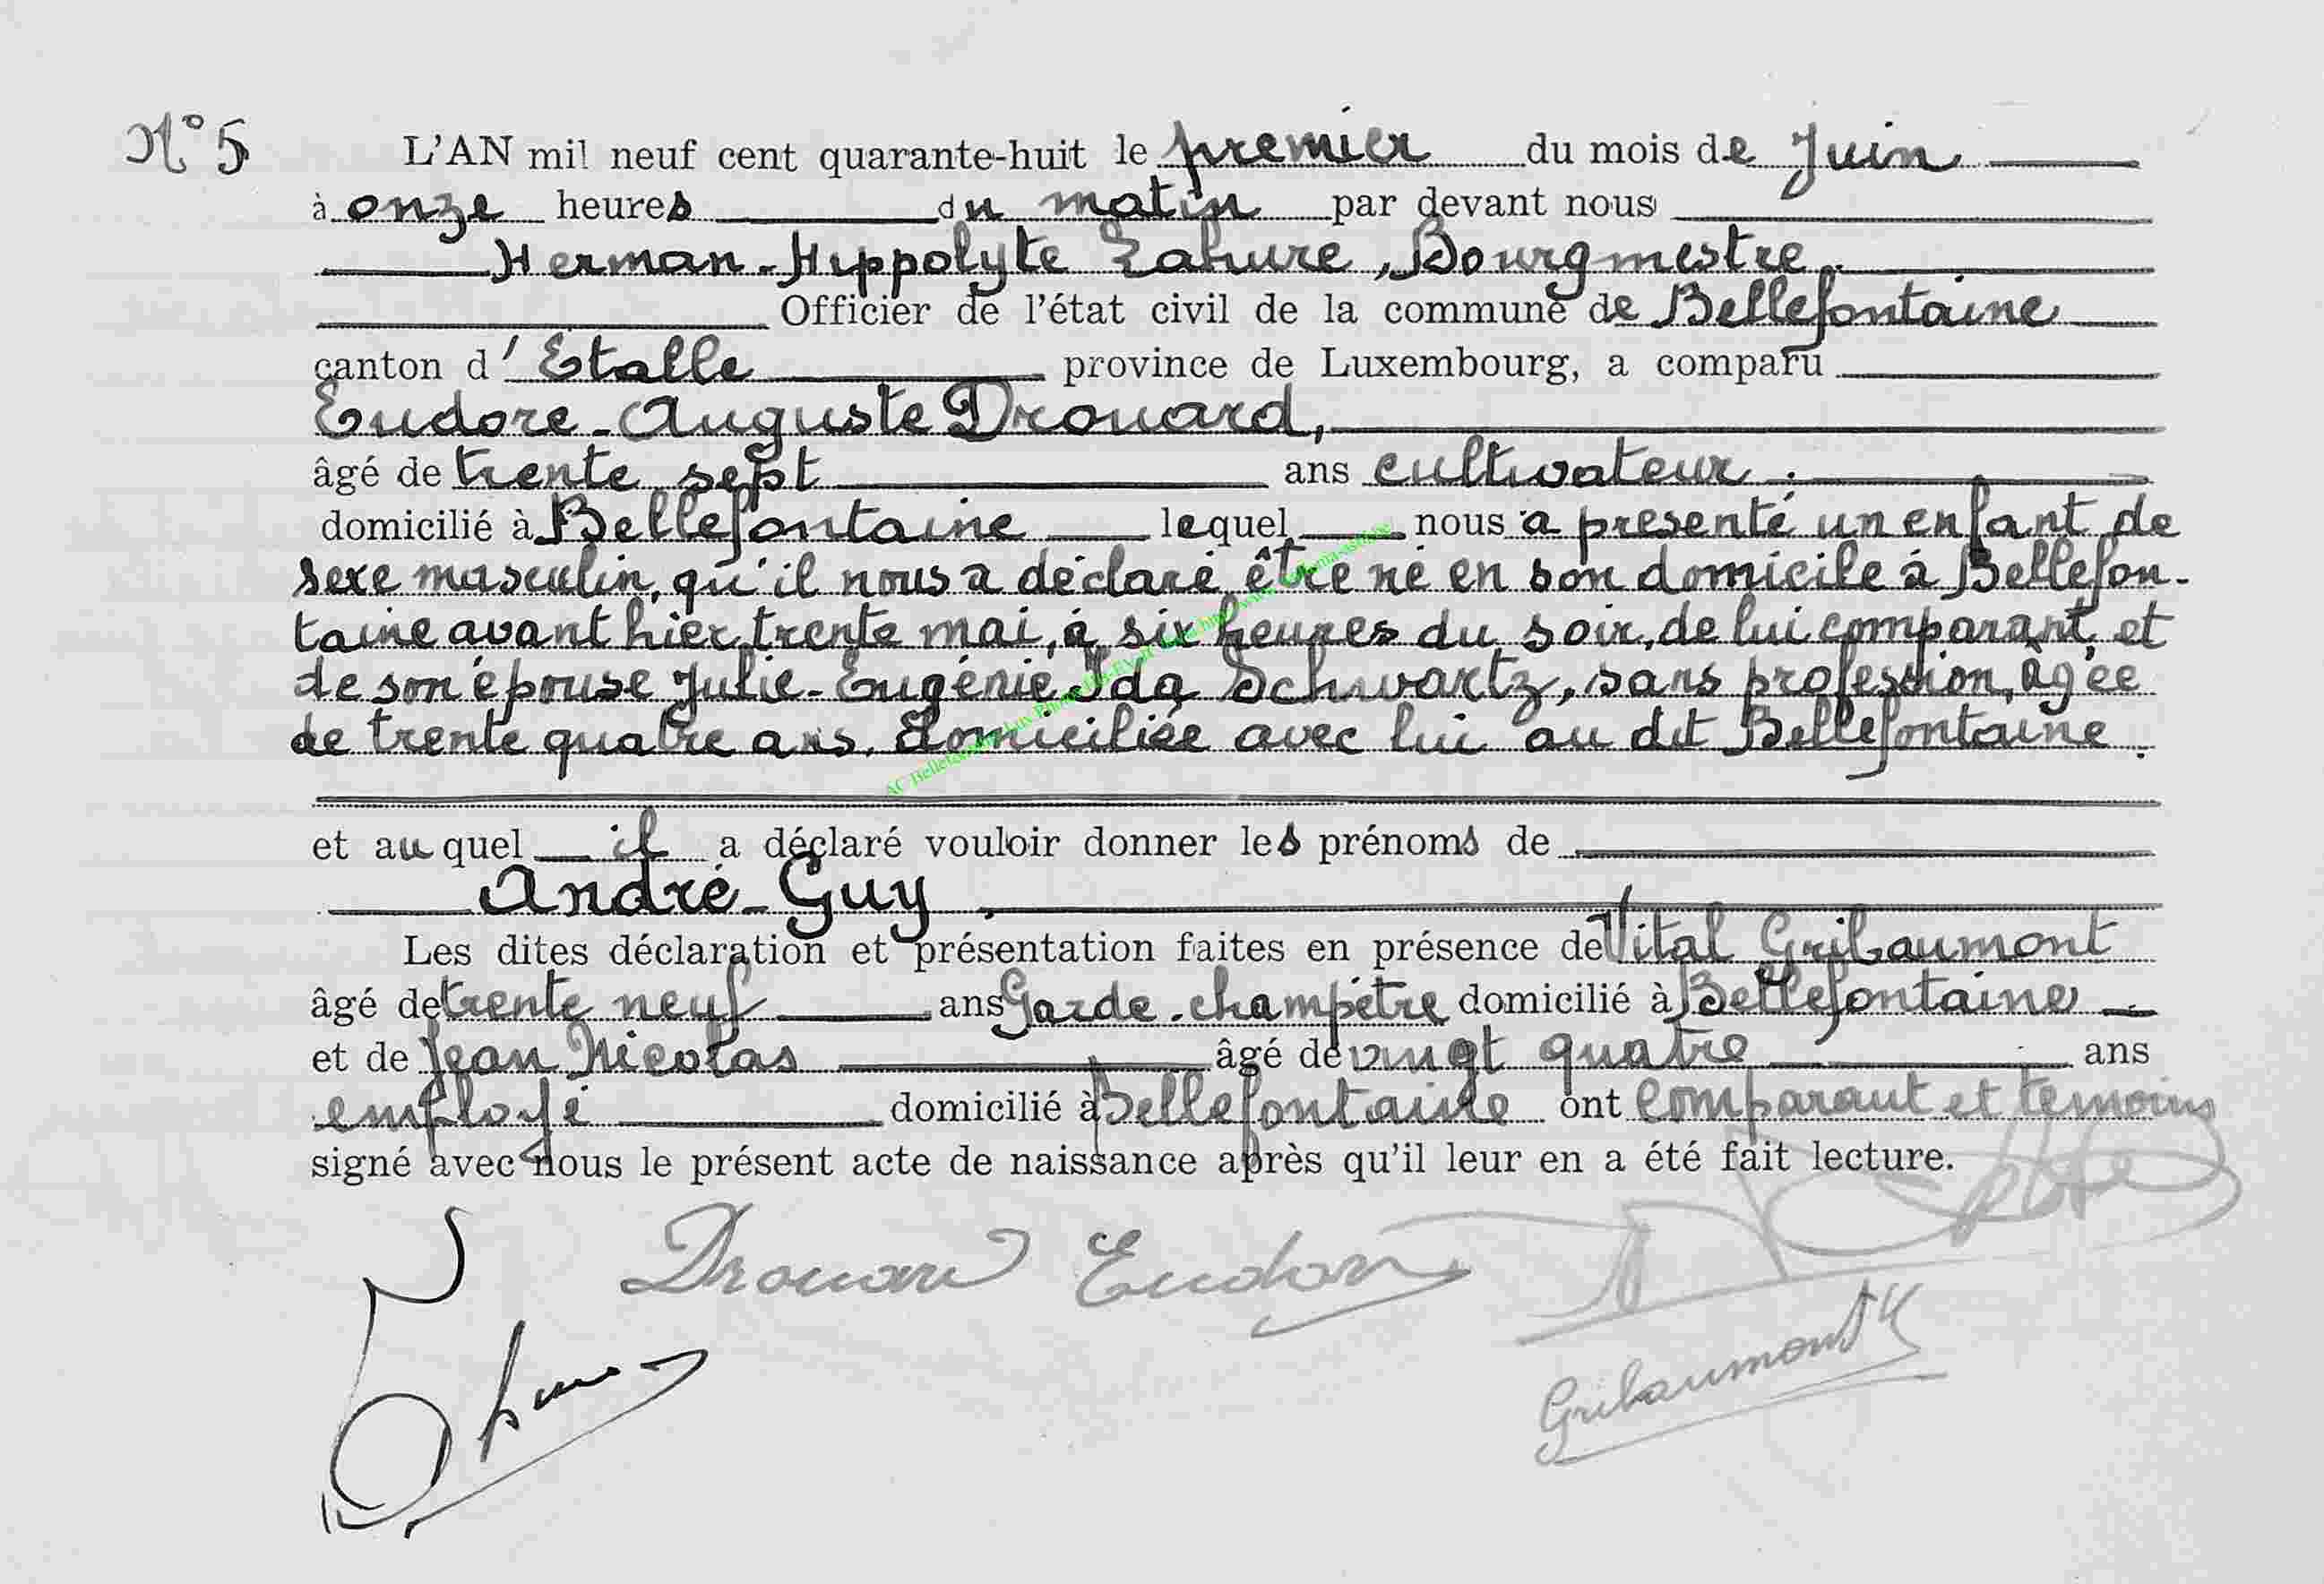 N° 5
L'AN mil neuf cent quarante-huit le premier du mois de Juin
à onze heures du matin par devant nous
Herman-Hippolyte Lahure, Bourgmestre
Officier de l'état civil de la commune de Bellefontaine
canton d'Etalle province de Luxembourg, a comparu
Eudore-Auguste Drouard,
âgé de trente sept ans cultivateur,
domicilié à Bellefontaine lequel nous a présenté un enfant de
sexe masculin, qu'il nous a déclaré être né en son domicile à Bellefon-
taine avant hier, trente mai, à six heures du soir, de lui comparant, et
de son épouse Julie-Eugénie Ida Schwartz, sans profession, âgée
de trente quatre ans, domiciliée avec lui au dit Bellefontaine.
et auquel il a déclaré vouloir donner les prénoms de
André-Guy,
Les dites déclaration et présentation faites en présence de Vital Gribaumont
âgé de trente neuf ans Garde-champêtre domicilié à Bellefontaine
et de Jean Nicolas âgé de vingt quatre ans
employé domicilié à Bellefontaine ont comparant et témoins
signé avec nous le présent acte de naissance après qu'il leur en a été fait lecture.
Drouard Eudore
Gribaumont V
AC Bellefontaine